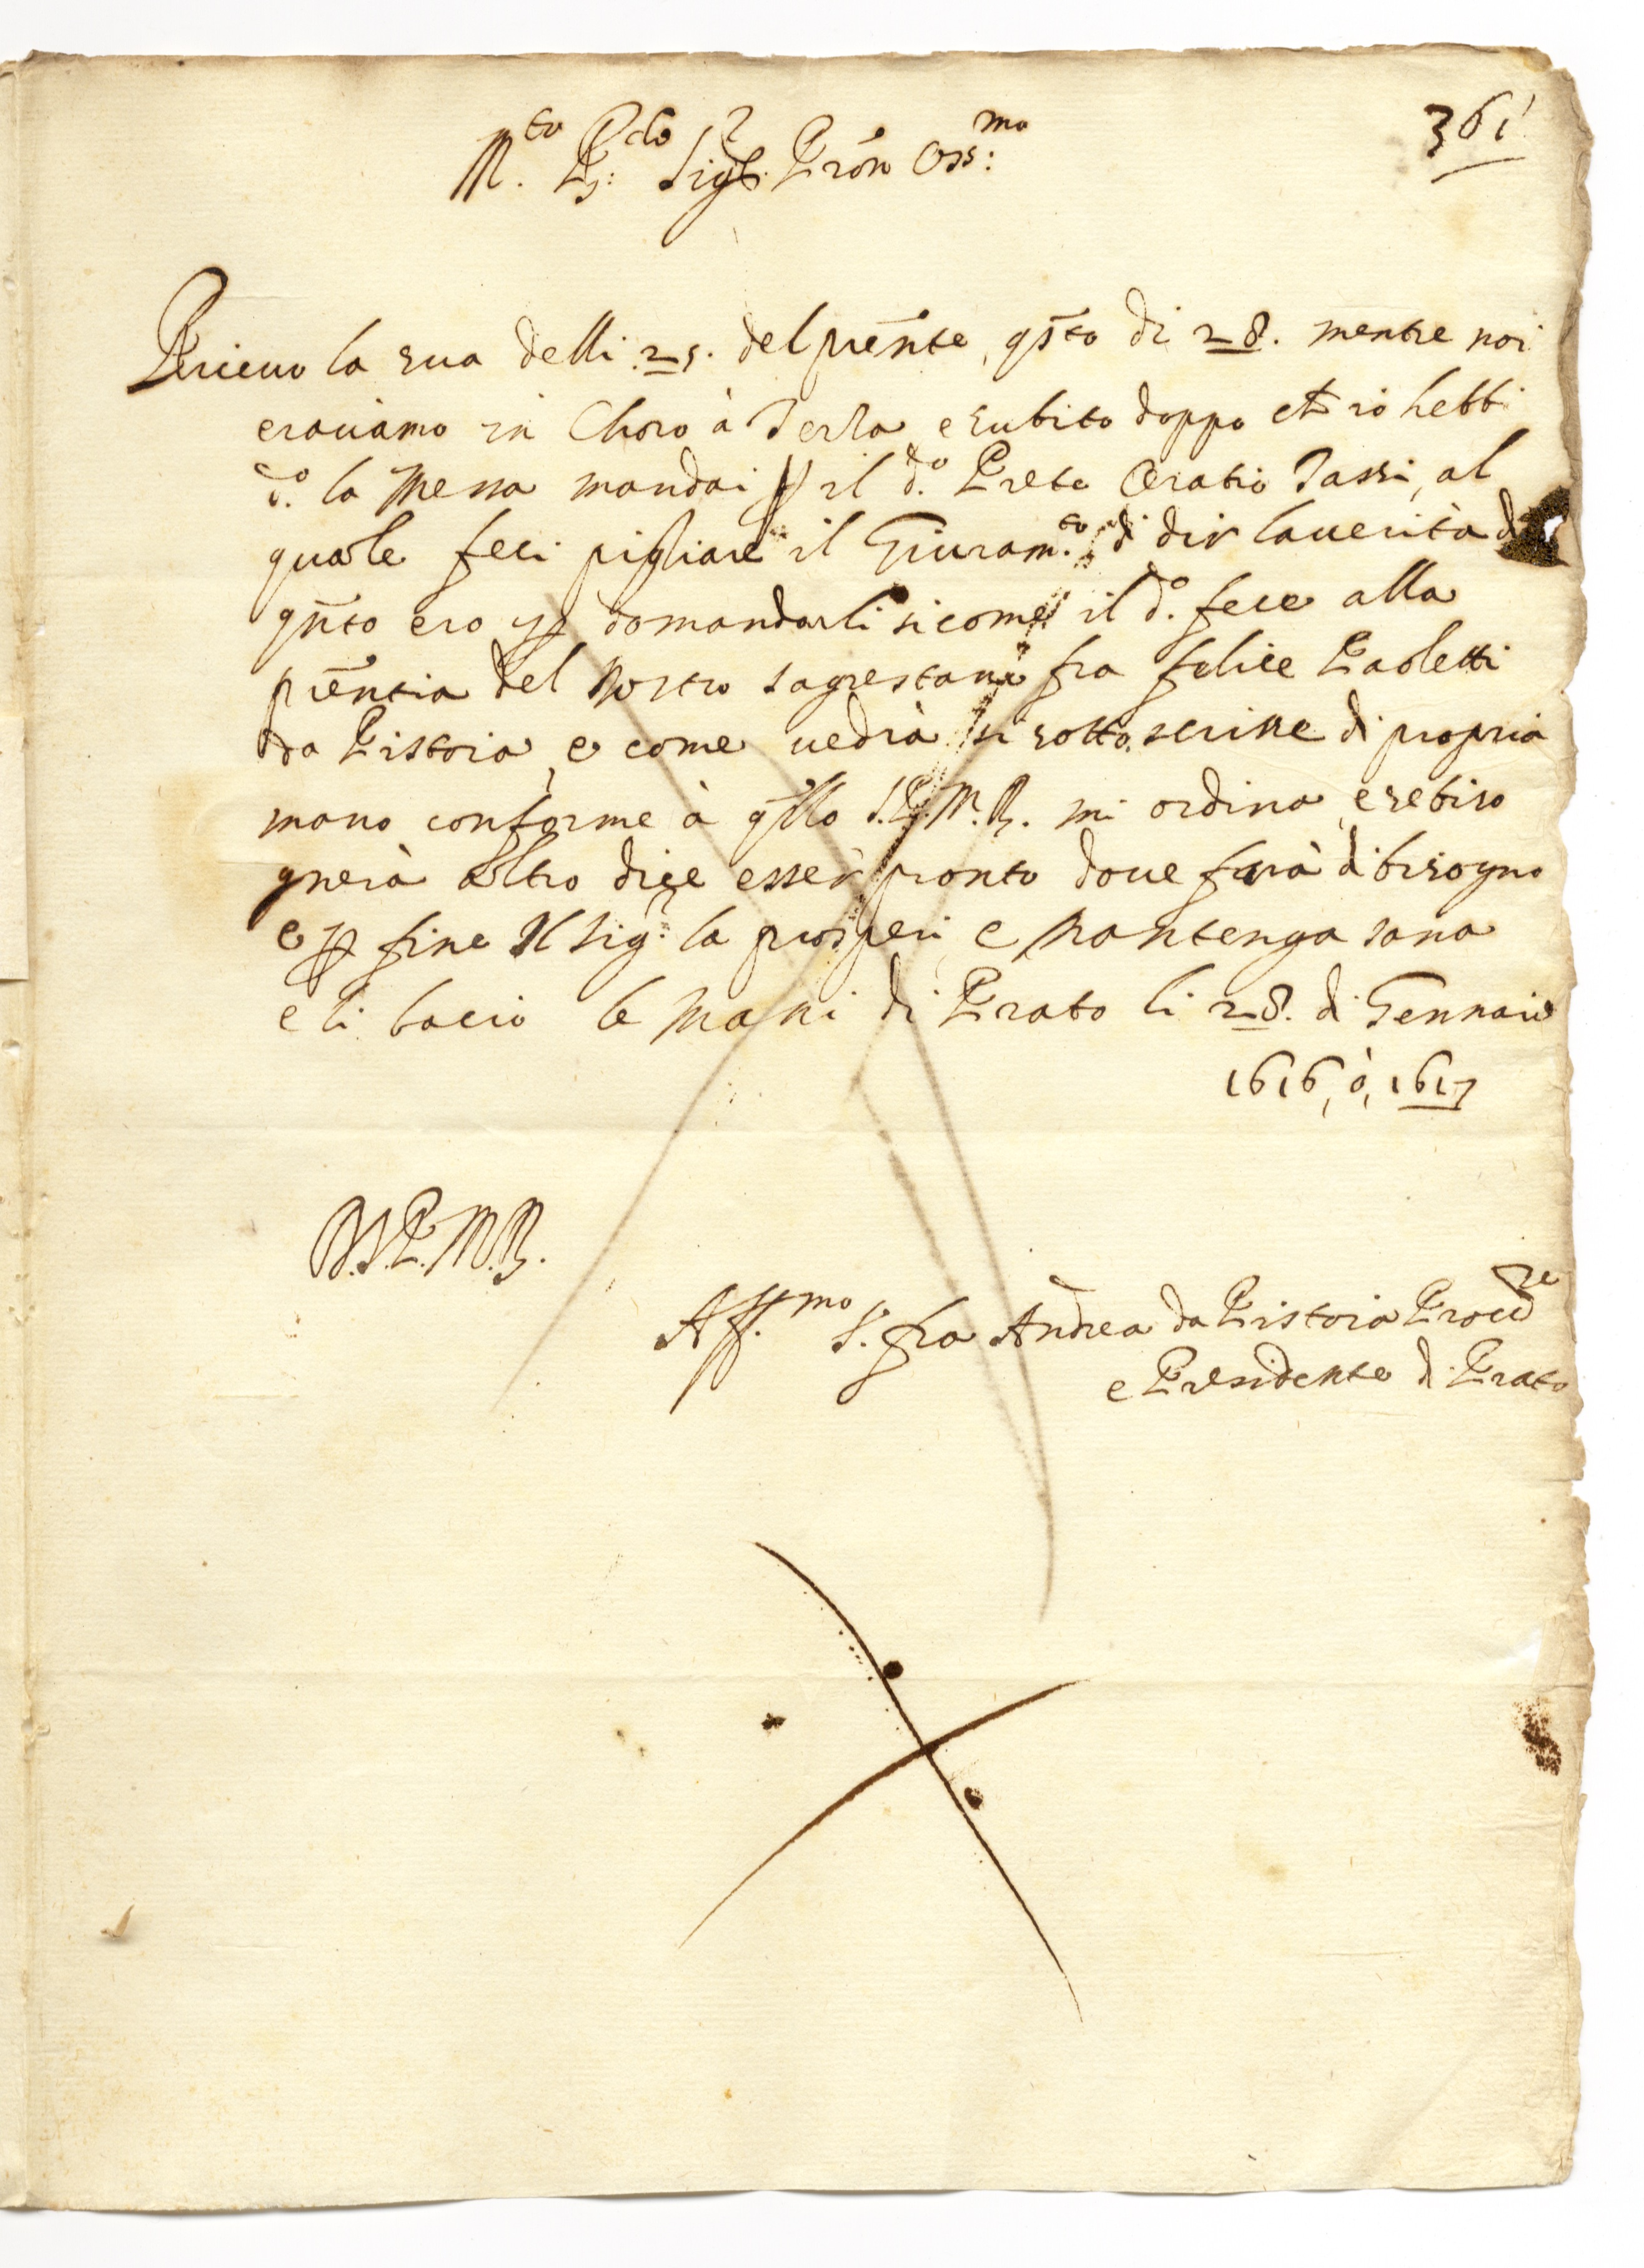 361
M.to R.do Sig.r Prōn Oss:mo
Riceuo la sua delli .25. del prēnte, qsto di 28. mentre noi
erauamo in Choro à Terza e subito doppo ch io hebbi
d.o la Messa mandai p il d.o Prete Oratio Tassi, al
quale feci pigliare il Giuram.to di dir la uerità di
qnto ero p domandarli sicome il d.o fece alla
prēntia del nostro sagrestano fra felice Paoletti
da Pistoia, e come uedrà si sotto scrisse di propria
mano conforme à qllo S.P.M.R. mi ordina, e se biso
gnerà altro dice esser pronto doue farà di bisogno
e p fine Il Sig.r la prosperi, e mantenga sana
e li bacio le mani di Prato li 28. di Gennaio
1616, ò, 1617
D.V.P.M.R.
Aff.mo S. fra Andrea da Pistoia
e Presidente di Prato